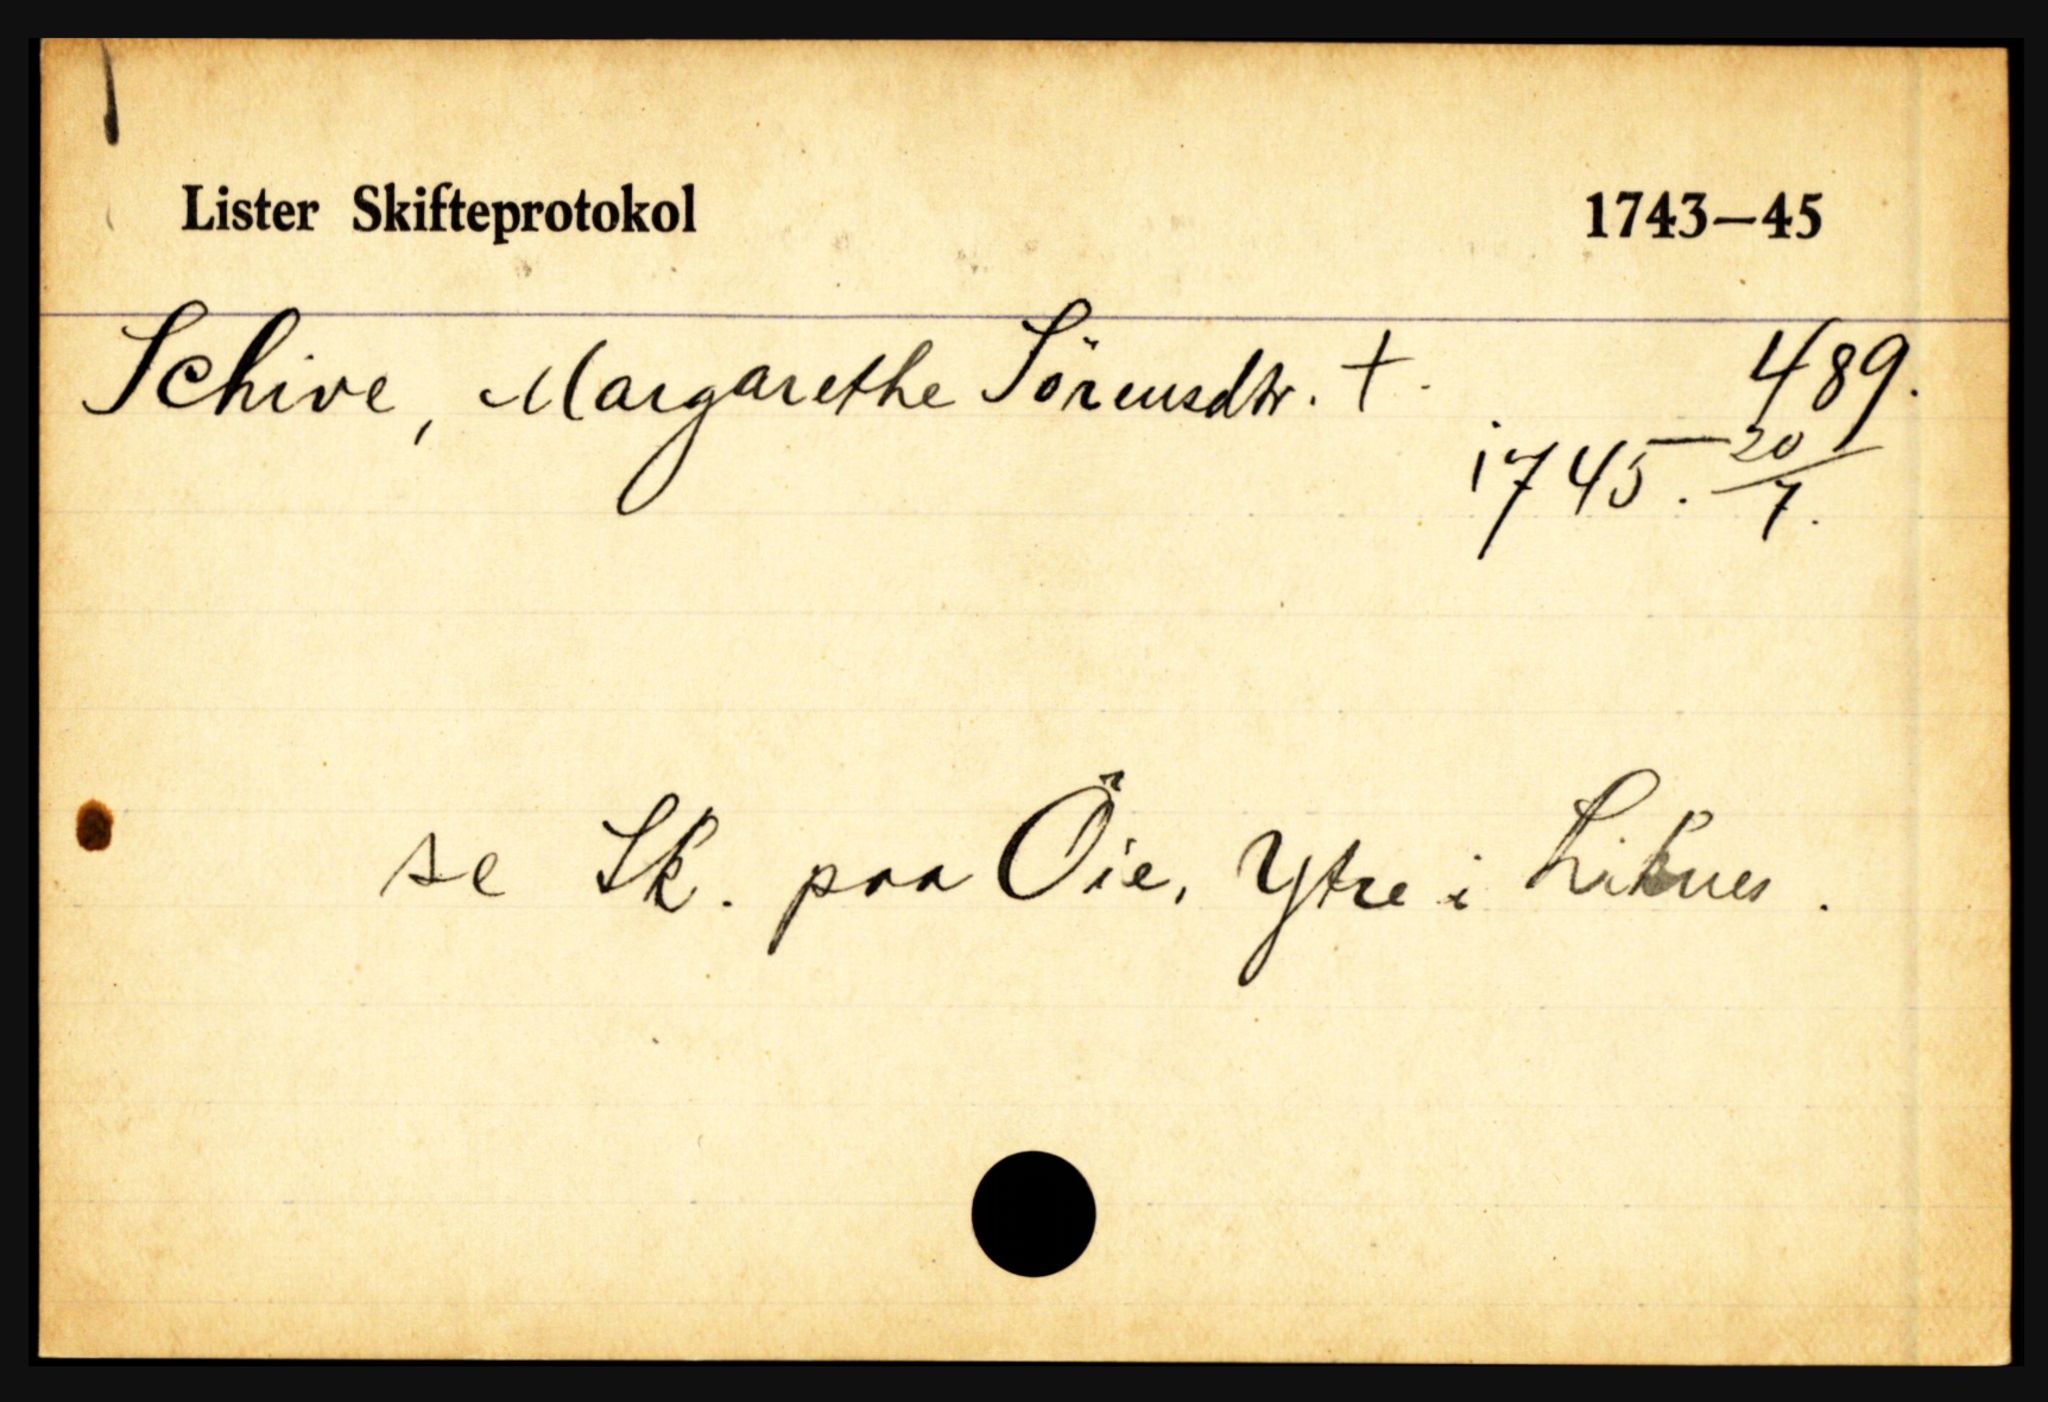 Lister Skifteprotokol 1743—45
Schive, Margarethe Sörensdtr. †. 489.
1745. 20/7.
se Sk. paa Öie, Ytre i Liknes.